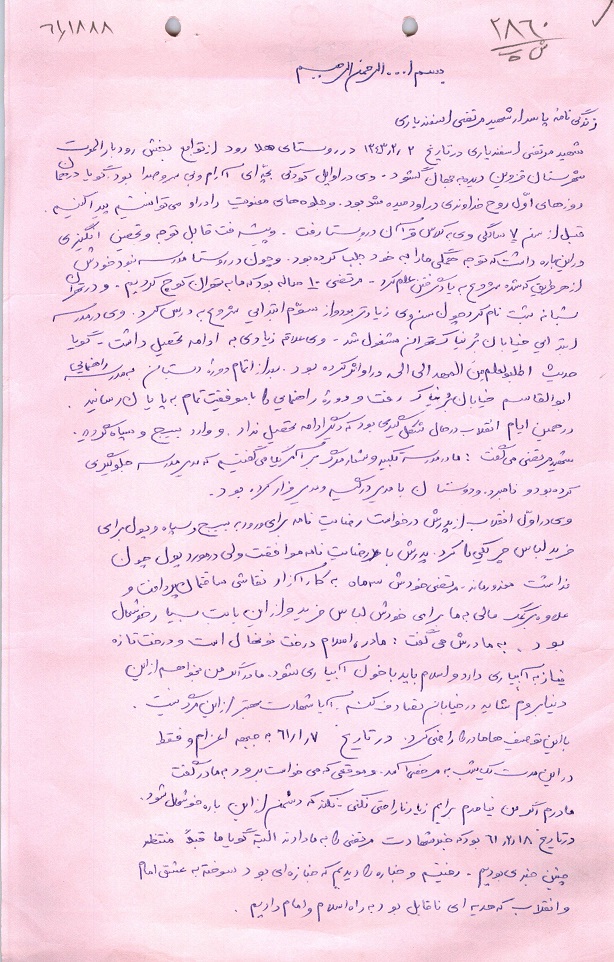 ۶۱/۱۸۸۸
۲۸۶۰
ش
بسم ا... الرحمن الرحیم
زندگی نامه پاسدار شهید مرتضی اسفندیاری
شهید مرتضی اسفندیاری در تاریخ ۱۳۴۳/۲/۲ در روستای هلا رود از توابع بخش رودبار الموت
شهرستان قزوین دیده به جهان گشود. وی در اوایل کودکی بچه‌ای آرام و بی سر و صدا بود گویا در همان
روزهای اول روح خداوندی در او دمیده شده بود. و جلوه‌های معنویت را در او می‌توانستیم پیدا کنیم.
قبل از سن ۷ سالگی وی به کلاس قرآن در روستا رفت. و پیشرفت قابل توجه و تحسین انگیزی
در این باره داشت که توجه همگی ما را به خود جلب کرده بود. و چون در روستا مدرسه نبود خودش
از هر طریق که شده شروع به یاد گرفتن علم کرد. مرتضی ۱۰ ساله بود که ما به تهران کوچ کردیم. و در تهران
شبانه ثبت نام کرد چون سن وی زیادتر بود و از سوم ابتدایی شروع به درس کرد. وی در مدرسه
ابتدایی خیابان غیاثی تهران مشغول شد. وی علاقه زیادی به ادامه تحصیل داشت. گویا
حدیث اطلبو العلم من المهد الی الحد در او اثر کرده بود. بعد از اتمام دوره دبستان به مدرسه راهنمایی
ابوالقاسم خیابان غیاثی رفت و دوره راهنمایی را با موفقیت تمام به پایان رسانید.
در همین ایام انقلاب در حال شکل گیری بود که دیگر ادامه تحصیل نداد. و وارد بسیج و سپاه گردید.
شهید مرتضی می‌گفت: ما در مدرسه تکبیر و شعار مرگ بر آمریکا می‌گفتیم که مدیر مدرسه جلوگیری
کرده بود و نامبرده و دوستان با مدیر درگیر و مدیر فرار کرده بود.
وی در اول انقلاب از پدرش درخواست رضایت نامه برای ورود به بسیج و سپاه و پول برای
خرید لباس چریکی را کرد. پدرش با رضایت نامه موافقت ولی در مورد پول چون
نداشت معذور ماند. مرتضی خودش سه ماه به کار آزاد نقاشی ساختمان پرداخت و
علاوه بر کمک مالی به ما برای خودش لباس خرید و از این بابت بسیار خوشحال
بود. به مادرش می‌گفت: مادر، اسلام درخت نونهال است و درخت تازه
نیاز به آبیاری دارد و اسلام باید با خون آبیاری شود. مادر اگر من نخواهم از این
دنیا بروم شاید در خیابان تصادف کنم. آیا شهادت بهتر از این مرگ نیست.
با این توصیف‌ها مادر را راضی کرد. در تاریخ ۶۱/۱/۷ به جبهه اعزام و فقط
در این مدت یک شب به مرخصی آمد. و موقعی که می‌خواست برود به مادر گفت
مادرم اگر من نیامدم برایم زیاد ناراحتی نکنی. نکند که دشمن از این باره خوشحال شود.
در تاریخ ۶۱/۲/۱۸ بود که خبر شهادت مرتضی را به ما دادند البته گویا ما قبلاً منتظر
چنین خبری بودیم. رفتیم و جنازه را دیدیم که جنازه‌ای بود سوخته به عشق امام
و انقلاب که هدیه‌ای ناقابل بود به راه اسلام و امام دادیم.